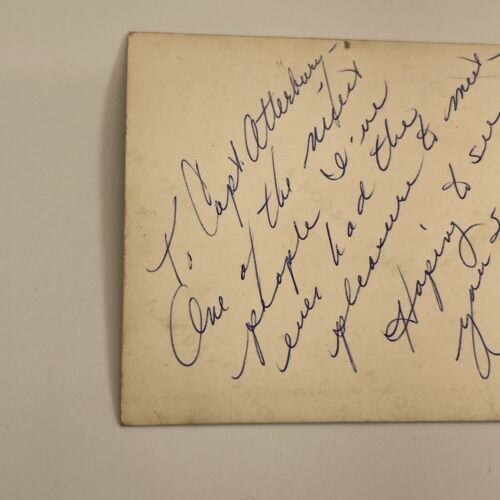 To Capt. Atterbury—
One of the nisest
people I've
ever had the
pleasure to meet—
Hoping to see
you